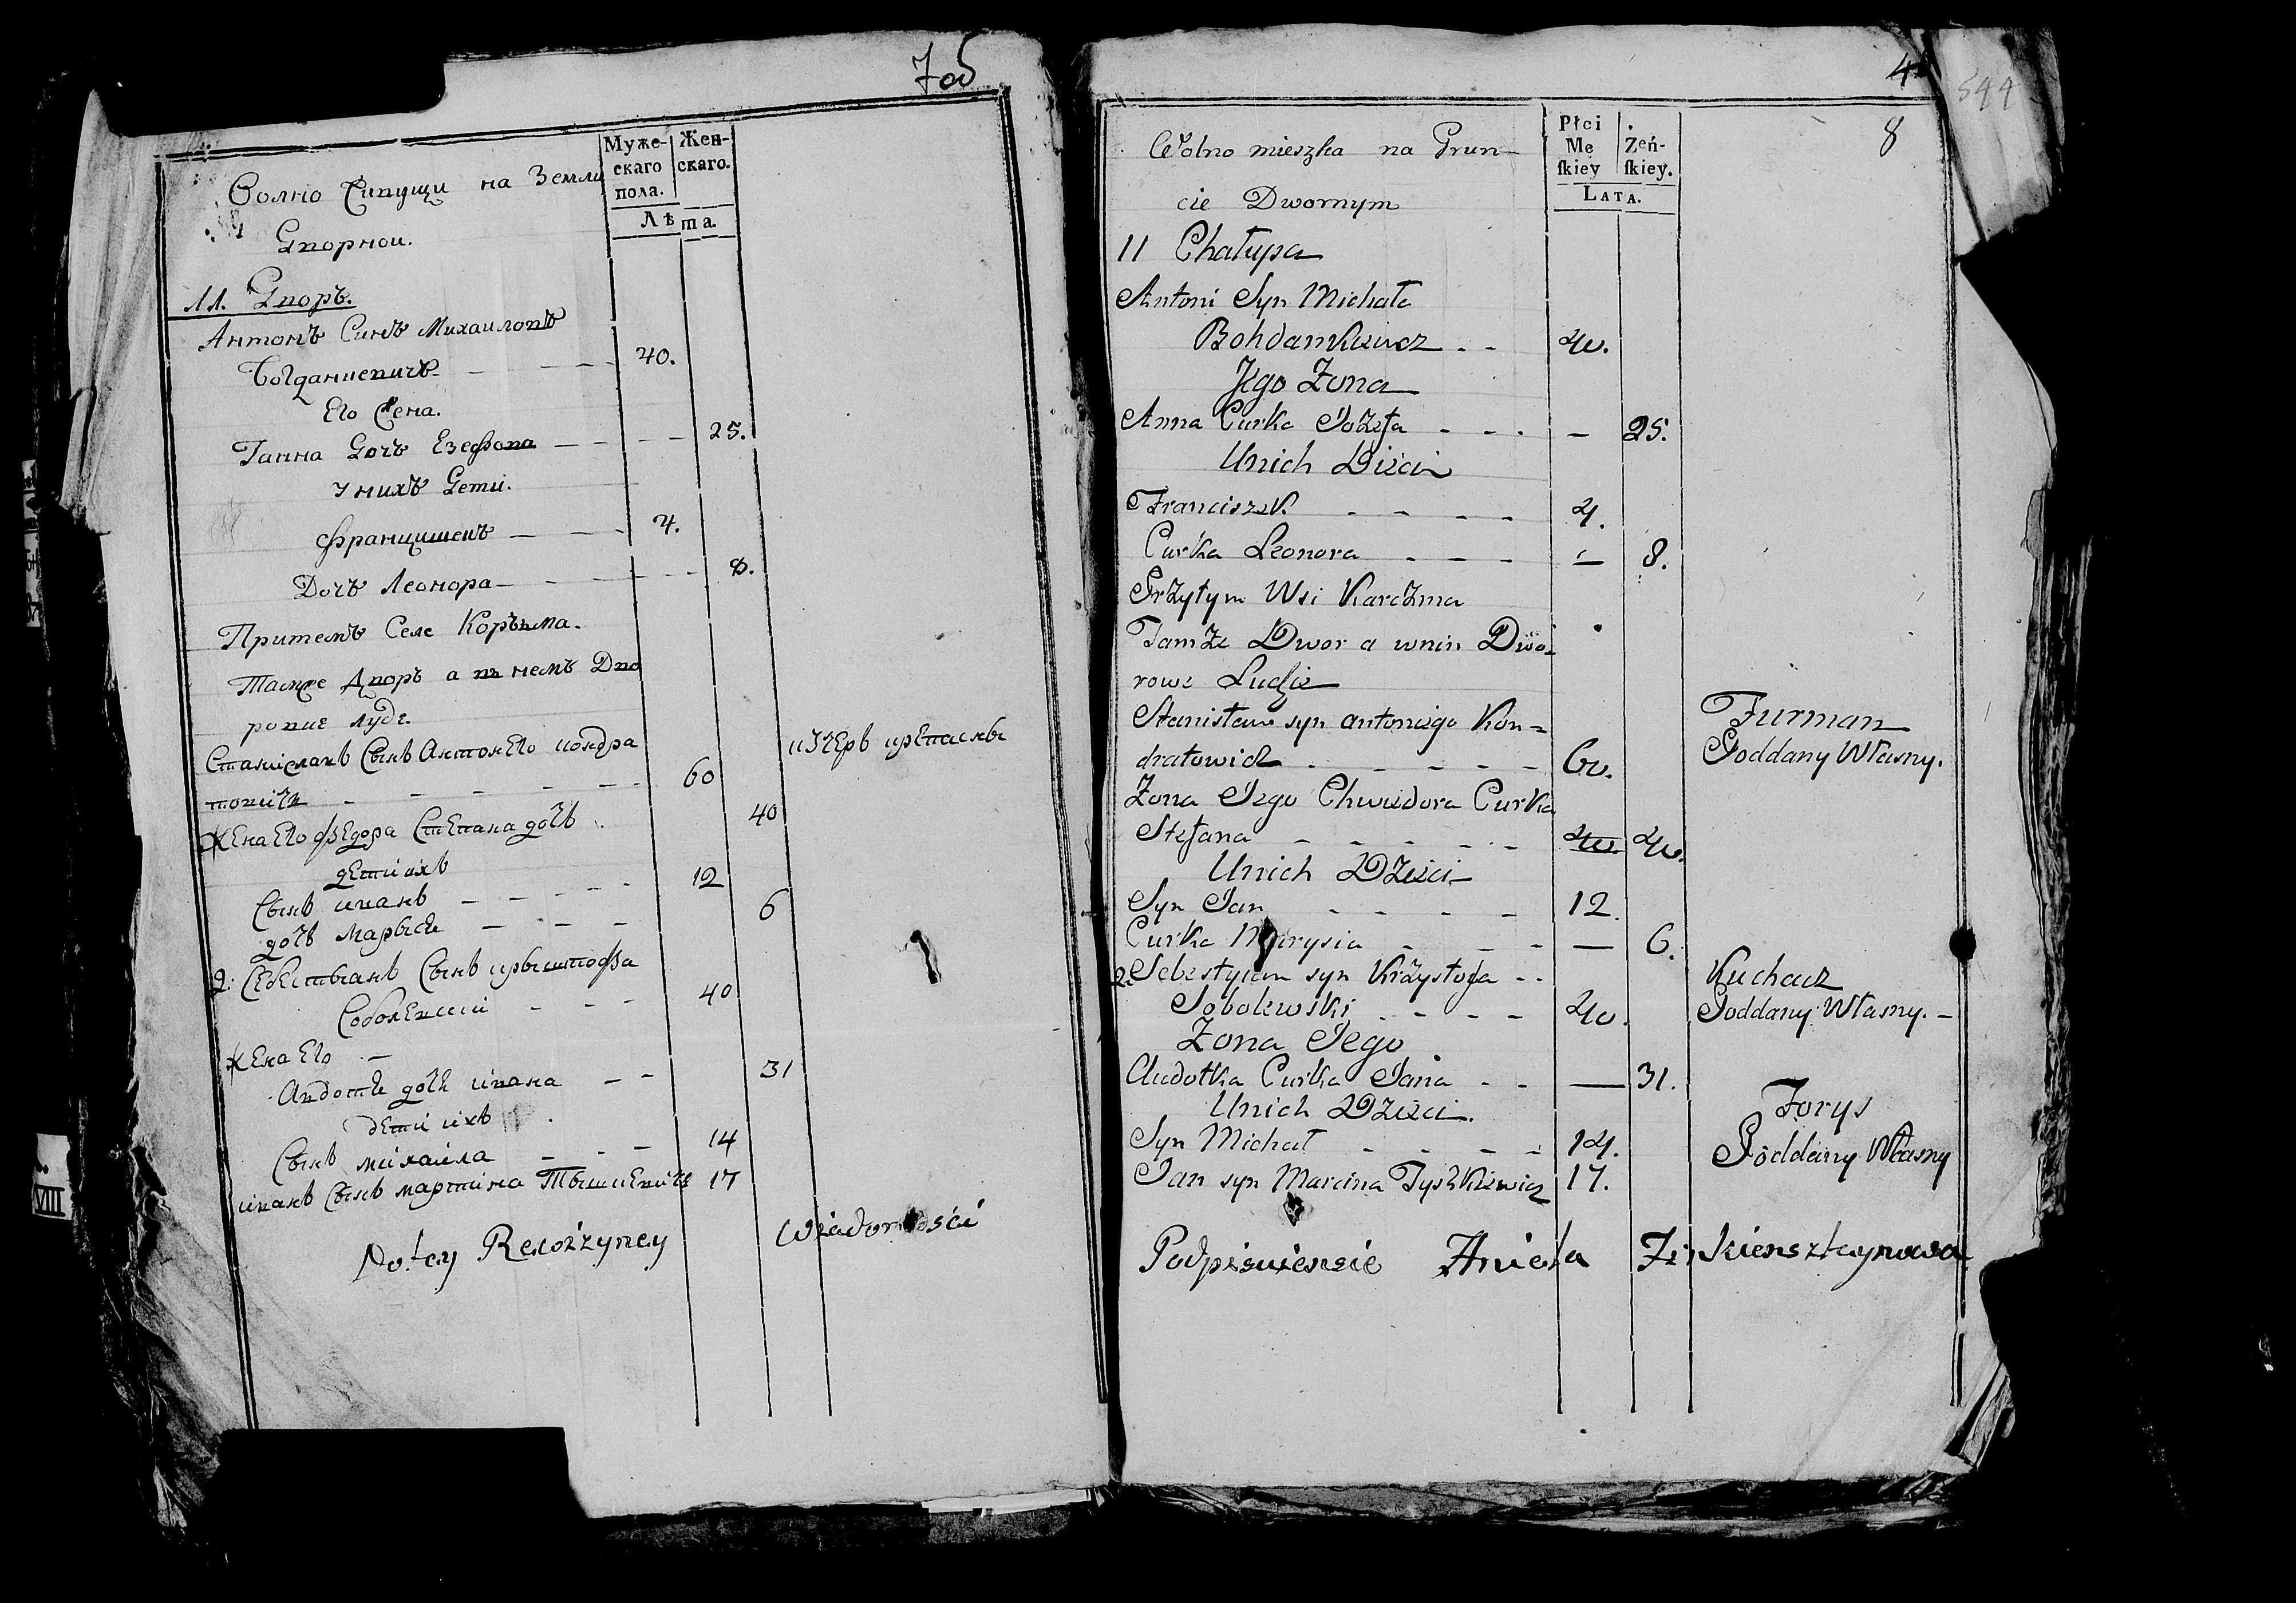 7 об
Муже-
скаго
пола.
Жен-
скаго.
Лѣта.
Волно Сипущи на Земли
Дворной.
11. Дворъ.
Антонъ Синъ Михаиловъ
Богданневичъ 40.
Его Жена.
Ганна Дочъ Езефова 25.
У нихъ Дети.
Францишекъ 4.
Дочъ Леонора 8.
Притемъ Селе Корчма.
Тамже Дворъ а въ немъ Дво
ровие Луде.
Станиславъ Сынъ Антонего кондра
товичъ 60
Жена его Федора Степана дочъ 40
дети ихъ
Сынъ иванъ 12
дочъ Марыся 6
2: Себестыанъ Сынъ крыштофа
Соболевский 40
Жена его
Авдотя дочъ ивана 31
дети ихъ
Сынъ михаила 14
иванъ Сынъ мартина Тышкевичъ 17
Do tey Rewizzyney Wiadomości
4
544
8
Płci
Mę
ſkiey
Żeń-
ſkiey.
LATA.
Wolno mieszka na Grun-
cie Dwornym
11 Chałupa
Antoni Syn Michała
Bohdankiewicz 40.
Jego Zona
Anna Curka Jozefa — 25.
Unich Dizci
Franciszek 4.
Curka Leonora — 8.
Przytym Wsi Karczma
Tamże Dwor a wnim Dwo-
rowe Ludzie
Stanisław syn antoniego Kon=
dratowicz 60. Furman
Poddany Własny.
Zona Jego Chwiedora Curka
Stefana 40. 40.
Unich Dzieci
Syn Jan 12.
Curka Marysia — 6.
2. Sebestyian syn Krzysztofa
Sobolewski 40. Kuchacz
Poddany Własny.
Zona Jego
Audotka Curka Jana — 31.
Unich Dzieci.
Syn Michał 14. Forys
Poddany Własny
Jan syn Marcina Tyszkiewicz 17.
Podpisuiensie Aniela